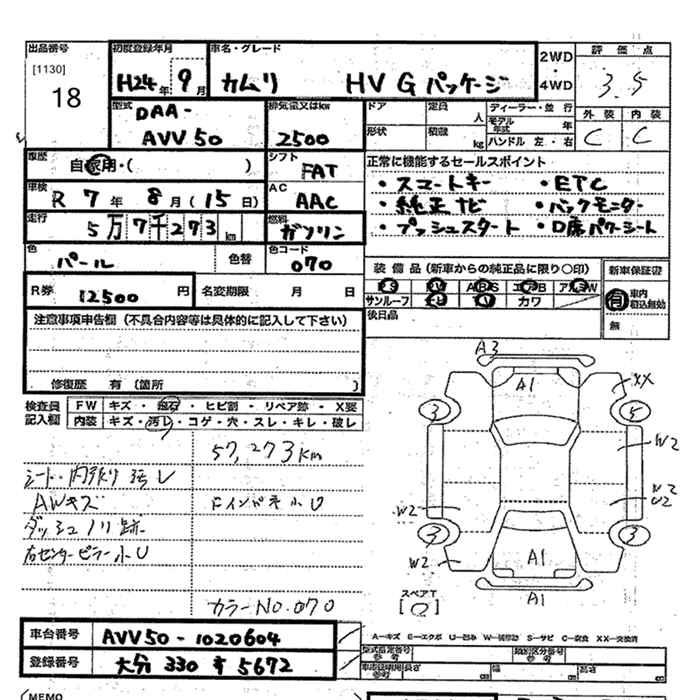 出品番号
[1130]
18
初度登録年月
H24年 9月
車名・グレード
カムリ HV G パッケージ
2WD
・
4WD
評価点
3.5
外装 内装
C C
型式
DAA-
AVV50
排気量又はkw
2500
ドア 定員 人
形状 積載 kg
ディーラー・並行
モデル年式 年
ハンドル 左・右
車歴
自家用・( )
シフト
FAT
車検
R 7年 8月(15日)
AC
AAC
走行
5万7千273km
燃料
ガソリン
色
パール
色替
色コード
070
R券
12500円
名変期限 月 日
正常に機能するセールスポイント
・スマートキー ・ETC
・純正ナビ ・バックモニター
・プッシュスタート ・D席パワーシート
装備品(新車からの純正品に限り○印)
PS PW ABS エアB アルミW
サンルーフ ナビ TV カワ
後日品
新車保証書
有 車内積込無効
無
注意事項申告欄(不具合内容等は具体的に記入して下さい)
修復歴 有(箇所 )
検査員記入欄
FW キズ・飛石・ヒビ割・リペア跡・X要
内装 キズ・汚レ・コゲ・穴・スレ・キレ・破レ
57,273km
シート・内張り汚レ
AWキズ
Fインパネ小U
ダッシュノリ跡
右センターピラー小U
カラーNo.070
A3
A1
XX
3
5
W2
W2
U2
W2
3
3
W2
A1
A1
スペアT
車台番号 AVV50-1020604
登録番号 大分 330 す 5672
A―キズ E―エクボ U―凹み W―補修跡 S―サビ C―腐食 XX―交換済
型式指定番号 参考
類別区分番号 参考
長さ cm 幅 cm 高さ cm
MEMO